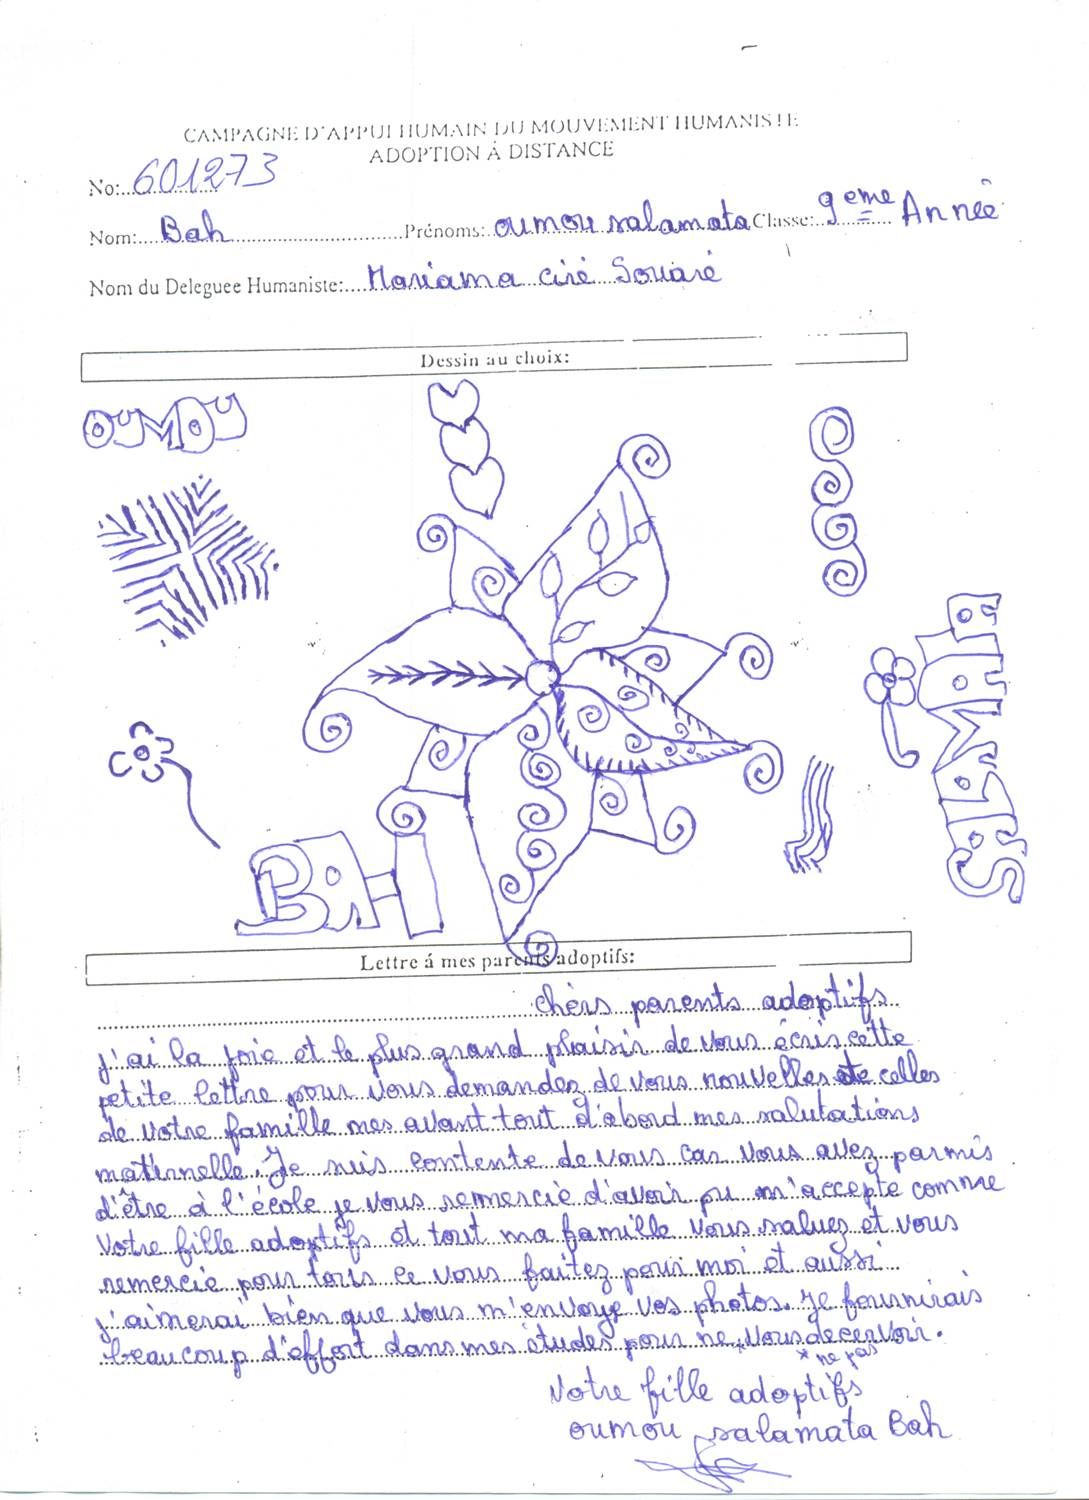 CAMPAGNE D'APPUI HUMAIN DU MOUVEMENT HUMANISTE
ADOPTION Á DISTANCE
No:...601273
Nom:....Bah............................Prénoms:..oumou salamata Classe:..9eme....Année
Nom du Deleguee Humaniste:....Mariama ciré Souaré
Dessin au choix:
OUMOU
SALAMATA
BAH
Lettre á mes parents adoptifs:
chèrs parents adoptifs
j'ai la joie et le plus grand plaisir de vous écris cette
petite lettre pour vous demandez de vous nouvelles et celles
de votre famille mes avant tout d'abord mes salutations
maternelle. Je suis contente de vous car vous avez parmis
d'être à l'école je vous remercie d'avoir pu m'accepte comme
votre fille adoptifs et tout ma famille vous saluez et vous
remercie pour tous ce vous faitez pour moi et aussi
j'aimerai bien que vous m'envoye vos photos. Je fournirais
beaucoup d'effort dans mes études pour ne * vous decervoir.
* ne pas
Votre fille adoptifs
oumou salamata Bah